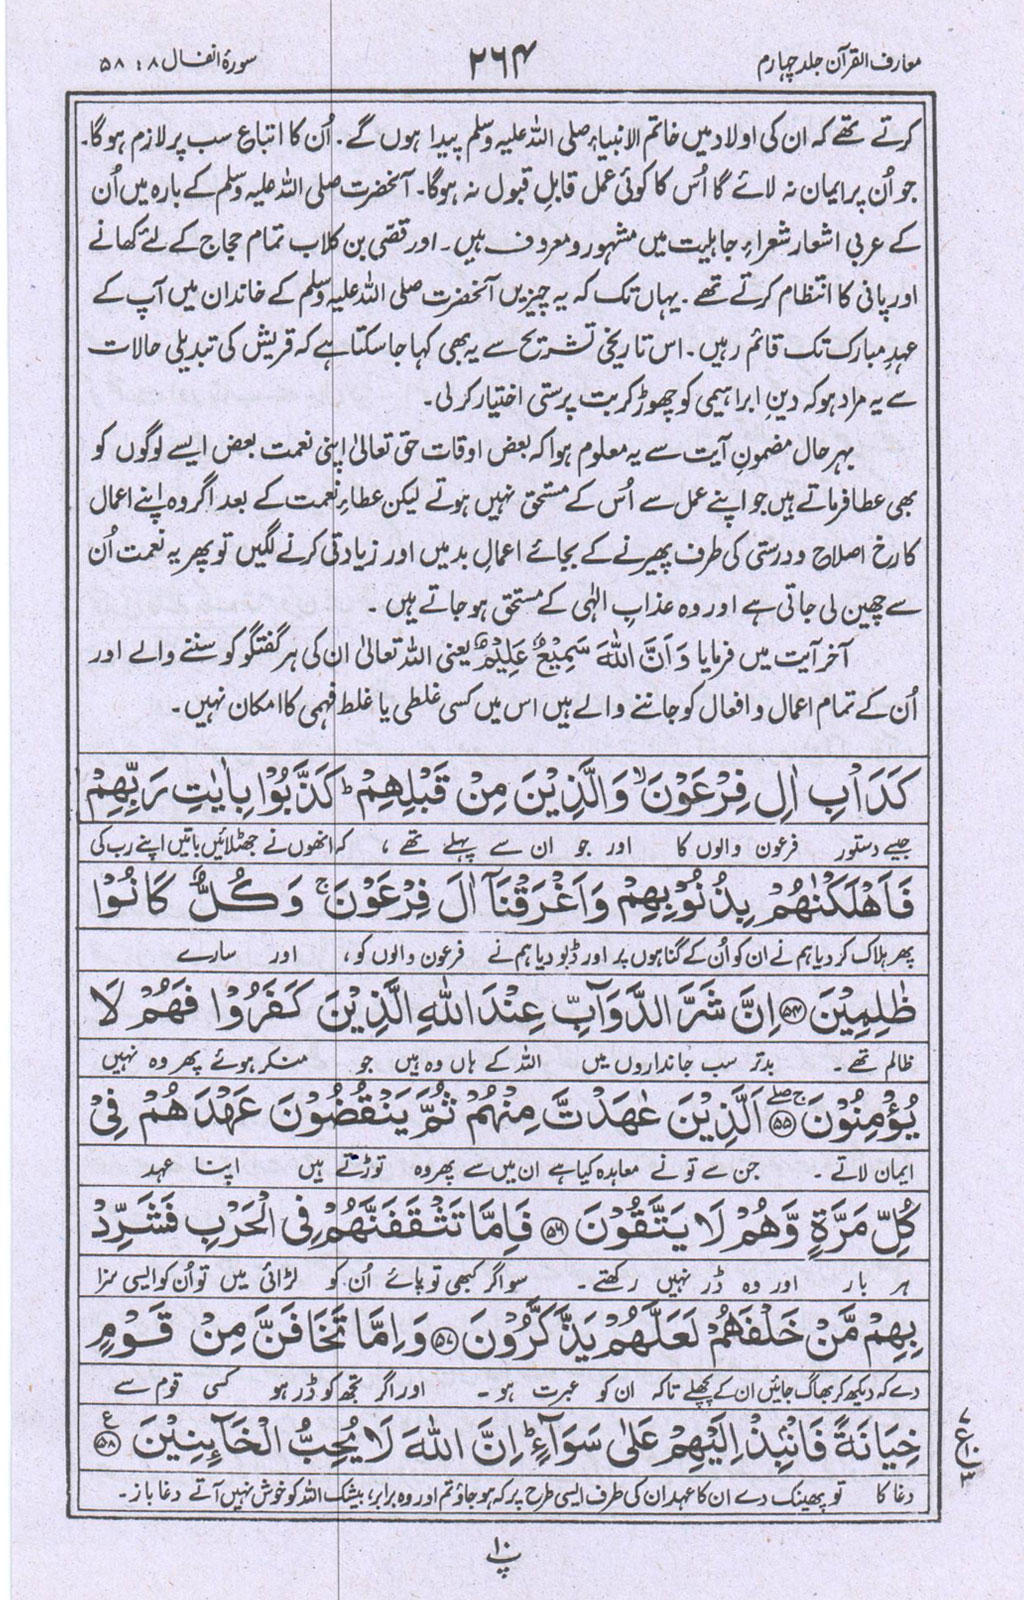 معارف القرآن جلد چہارم
۲۶۴
سورۂ انفال ۸ : ۵۸
کرتے تھے کہ ان کی اولاد میں خاتم الانبیاء صلی اللہ علیہ وسلم پیدا ہوں گے۔ اُن کا اتباع سب پر لازم ہوگا۔
جو اُن پر ایمان نہ لائے گا اُس کا کوئی عمل قابلِ قبول نہ ہوگا۔ آنحضرت صلی اللہ علیہ وسلم کے بارہ میں اُن
کے عربی اشعار شعراءِ جاہلیت میں مشہور و معروف ہیں۔ اور قصی بن کلاب تمام حجاج کے لئے کھانے
اور پانی کا انتظام کرتے تھے۔ یہاں تک کہ یہ چیزیں آنحضرت صلی اللہ علیہ وسلم کے خاندان میں آپ کے
عہدِ مبارک تک قائم رہیں۔ اس تاریخی تشریح سے یہ بھی کہا جاسکتا ہے کہ قریش کی تبدیلی حالات
سے یہ مراد ہو کہ دینِ ابراہیمی کو چھوڑ کر بت پرستی اختیار کرلی۔
بہرحال مضمونِ آیت سے یہ معلوم ہوا کہ بعض اوقات حق تعالیٰ اپنی نعمت بعض ایسے لوگوں کو
بھی عطا فرماتے ہیں جو اپنے عمل سے اُس کے مستحق نہیں ہوتے لیکن عطاءِ نعمت کے بعد اگر وہ اپنے اعمال
کا رخ اصلاح و درستی کی طرف پھیرنے کے بجائے اعمالِ بد میں اور زیادتی کرنے لگیں تو پھر یہ نعمت اُن
سے چھین لی جاتی ہے اور وہ عذابِ الٰہی کے مستحق ہو جاتے ہیں۔
آخر آیت میں فرمایا وَاَنَّ اللّٰهَ سَمِيْعٌ عَلِيْمٌ یعنی اللہ تعالیٰ ان کی ہر گفتگو کو سننے والے اور
اُن کے تمام اعمال و افعال کو جاننے والے ہیں اس میں کسی غلطی یا غلط فہمی کا امکان نہیں۔
كَدَاْبِ اٰلِ فِرْعَوْنَ ۙ وَالَّذِيْنَ مِنْ قَبْلِهِمْ ؕ كَذَّبُوْا بِاٰيٰتِ رَبِّهِمْ
جیسے دستور فرعون والوں کا اور جو ان سے پہلے تھے، کہ انھوں نے جھٹلائیں باتیں اپنے رب کی
فَاَهْلَكْنٰهُمْ بِذُنُوْبِهِمْ وَاَغْرَقْنَاۤ اٰلَ فِرْعَوْنَ ۚ وَكُلٌّ كَانُوْا
پھر ہلاک کر دیا ہم نے ان کو اُن کے گناہوں پر اور ڈبو دیا ہم نے فرعون والوں کو، اور سارے
ظٰلِمِيْنَ ۝۵۴ اِنَّ شَرَّ الدَّوَآبِّ عِنْدَ اللّٰهِ الَّذِيْنَ كَفَرُوْا فَهُمْ لَا
ظالم تھے۔ بدتر سب جانداروں میں اللہ کے ہاں وہ ہیں جو منکر ہوئے پھر وہ نہیں
يُؤْمِنُوْنَ ۝۵۵ اَلَّذِيْنَ عٰهَدْتَّ مِنْهُمْ ثُمَّ يَنْقُضُوْنَ عَهْدَهُمْ فِيْ
ایمان لاتے۔ جن سے تو نے معاہدہ کیا ہے ان میں سے پھر وہ توڑتے ہیں اپنا عہد
كُلِّ مَرَّةٍ وَّهُمْ لَا يَتَّقُوْنَ ۝۵۶ فَاِمَّا تَثْقَفَنَّهُمْ فِي الْحَرْبِ فَشَرِّدْ
ہر بار اور وہ ڈر نہیں رکھتے۔ سو اگر کبھی تو پائے اُن کو لڑائی میں تو اُن کو ایسی سزا
بِهِمْ مَّنْ خَلْفَهُمْ لَعَلَّهُمْ يَذَّكَّرُوْنَ ۝۵۷ وَاِمَّا تَخَافَنَّ مِنْ قَوْمٍ
دے کہ دیکھ کر بھاگ جائیں ان کے پچھلے تاکہ ان کو عبرت ہو۔ اور اگر تجھ کو ڈر ہو کسی قوم سے
خِيَانَةً فَانْۢبِذْ اِلَيْهِمْ عَلٰى سَوَآءٍ ؕ اِنَّ اللّٰهَ لَا يُحِبُّ الْخَآئِنِيْنَ ۝۵۸ ع
دغا کا تو پھینک دے ان کا عہد ان کی طرف ایسی طرح پر کہ ہو جاؤ تم اور وہ برابر، بیشک اللہ کو خوش نہیں آتے دغا باز۔
پ۱۰